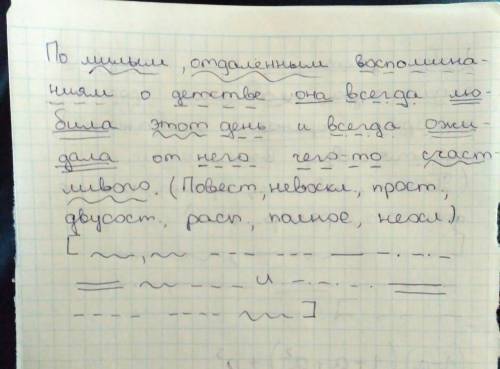 По милым, отдаленным воспомина-
ниям о детстве она всегда лю-
била этот день и всегда ожи-
дала от него чего-то счаст-
ливого. (Повест, невоскл., прост.,
двусост., расп., полное, неосл.)
[ , и
]